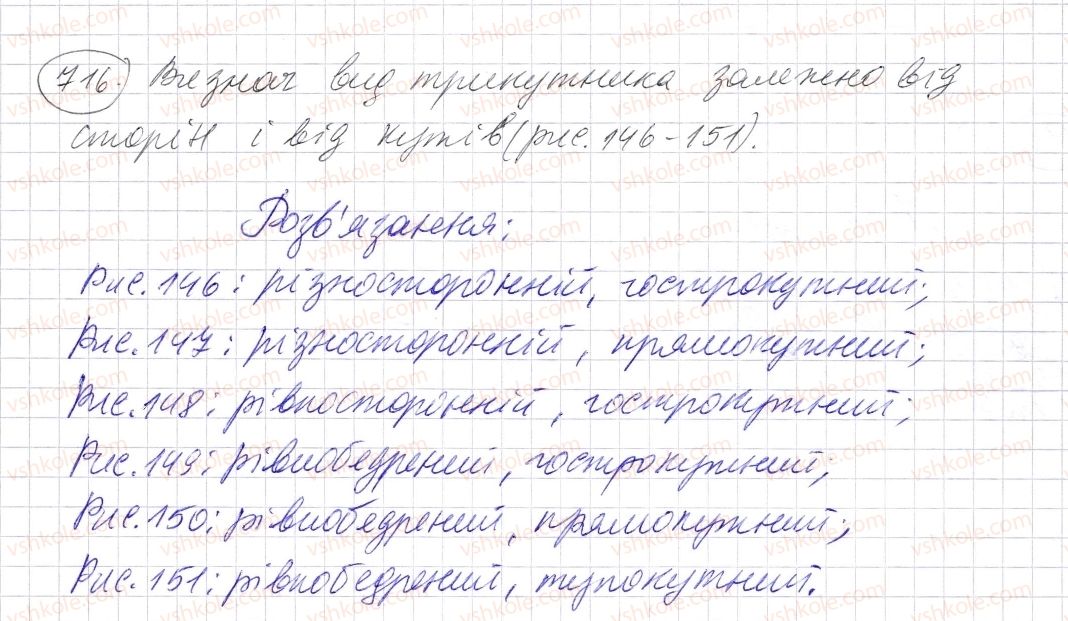 716. Визнач вид трикутника залежно від
сторін і від кутів (рис. 146-151).
Розв'язання:
Рис. 146: різносторонній, гострокутний;
Рис. 147: різносторонній, прямокутний;
Рис. 148: рівносторонній, гострокутний;
Рис. 149: рівнобедрений, гострокутний;
Рис. 150: рівнобедрений, прямокутний;
Рис. 151: рівнобедрений, тупокутний.